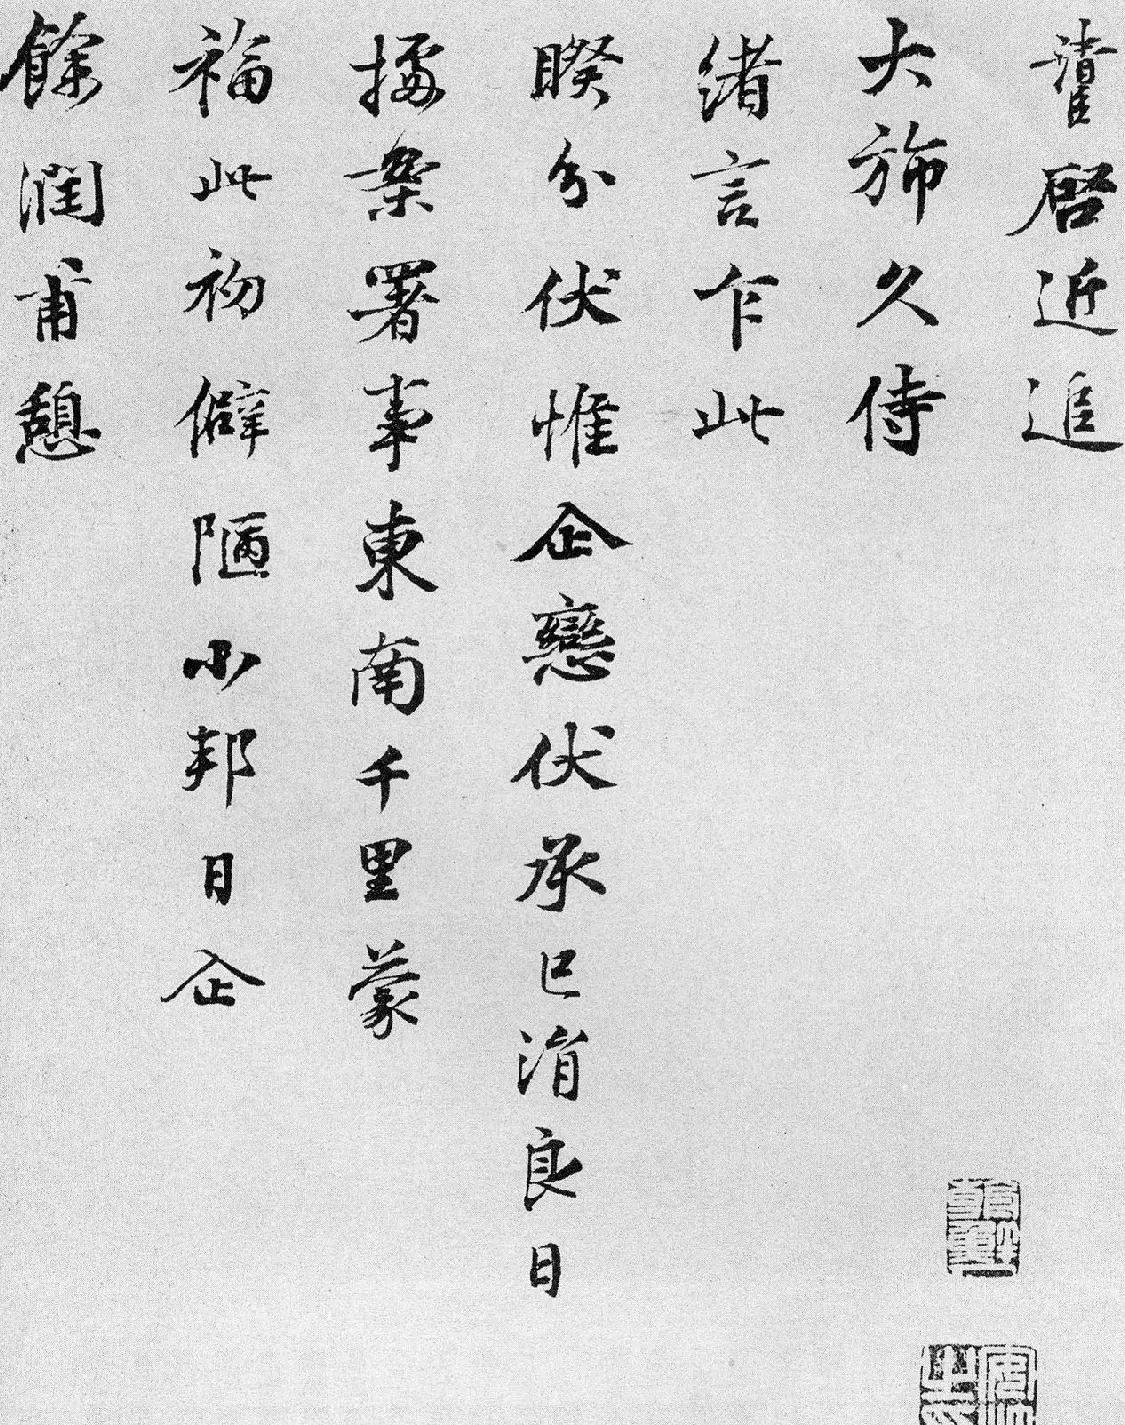 啓近追
大旆久侍
緒言乍此
睽分伏惟企戀伏承已涓良日
據案署事東南千里蒙
福此初僻陋小邦日企
餘潤甫憩